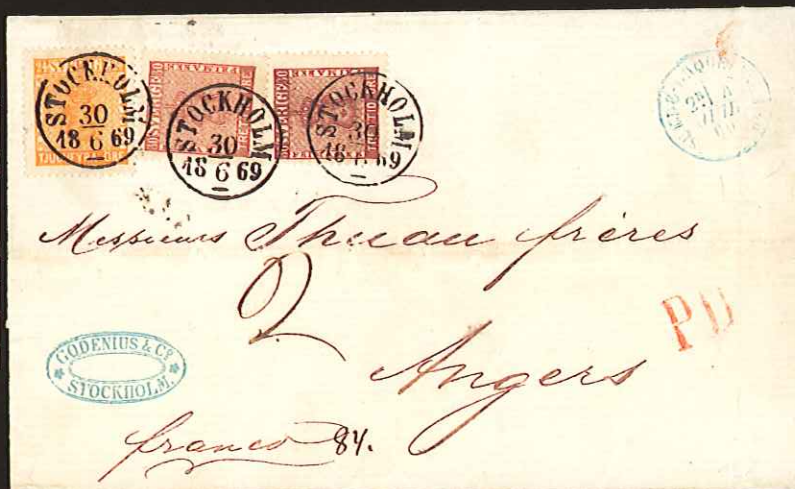 STOCKHOLM
30
18 6 69
STOCKHOLM
30
18 6 69
STOCKHOLM
30
18 69
Messieurs Thuau frères
2
PD
GODENIUS & Co
STOCKHOLM.
Angers
franco 84.